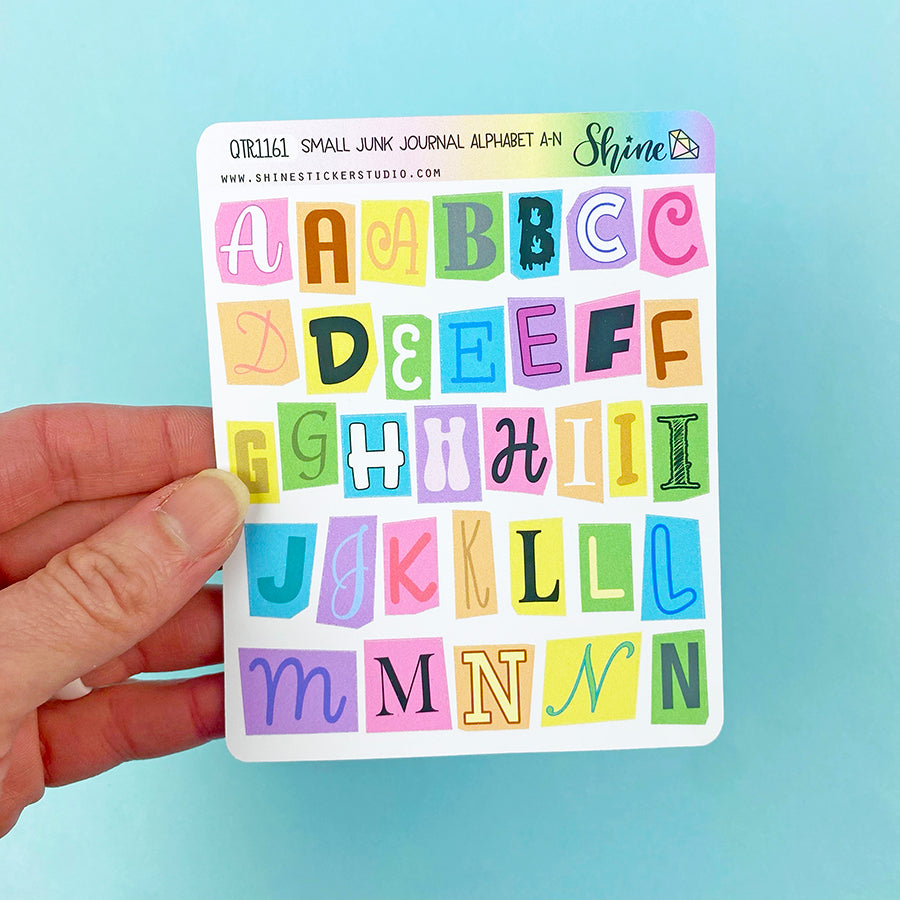 QTR1161 SMALL JUNK JOURNAL ALPHABET A-N Shine
WWW.SHINESTICKERSTUDIO.COM
A A A B B C C
D D E E E F F
G G H H H I I I
J J K K L L L
M M N N N